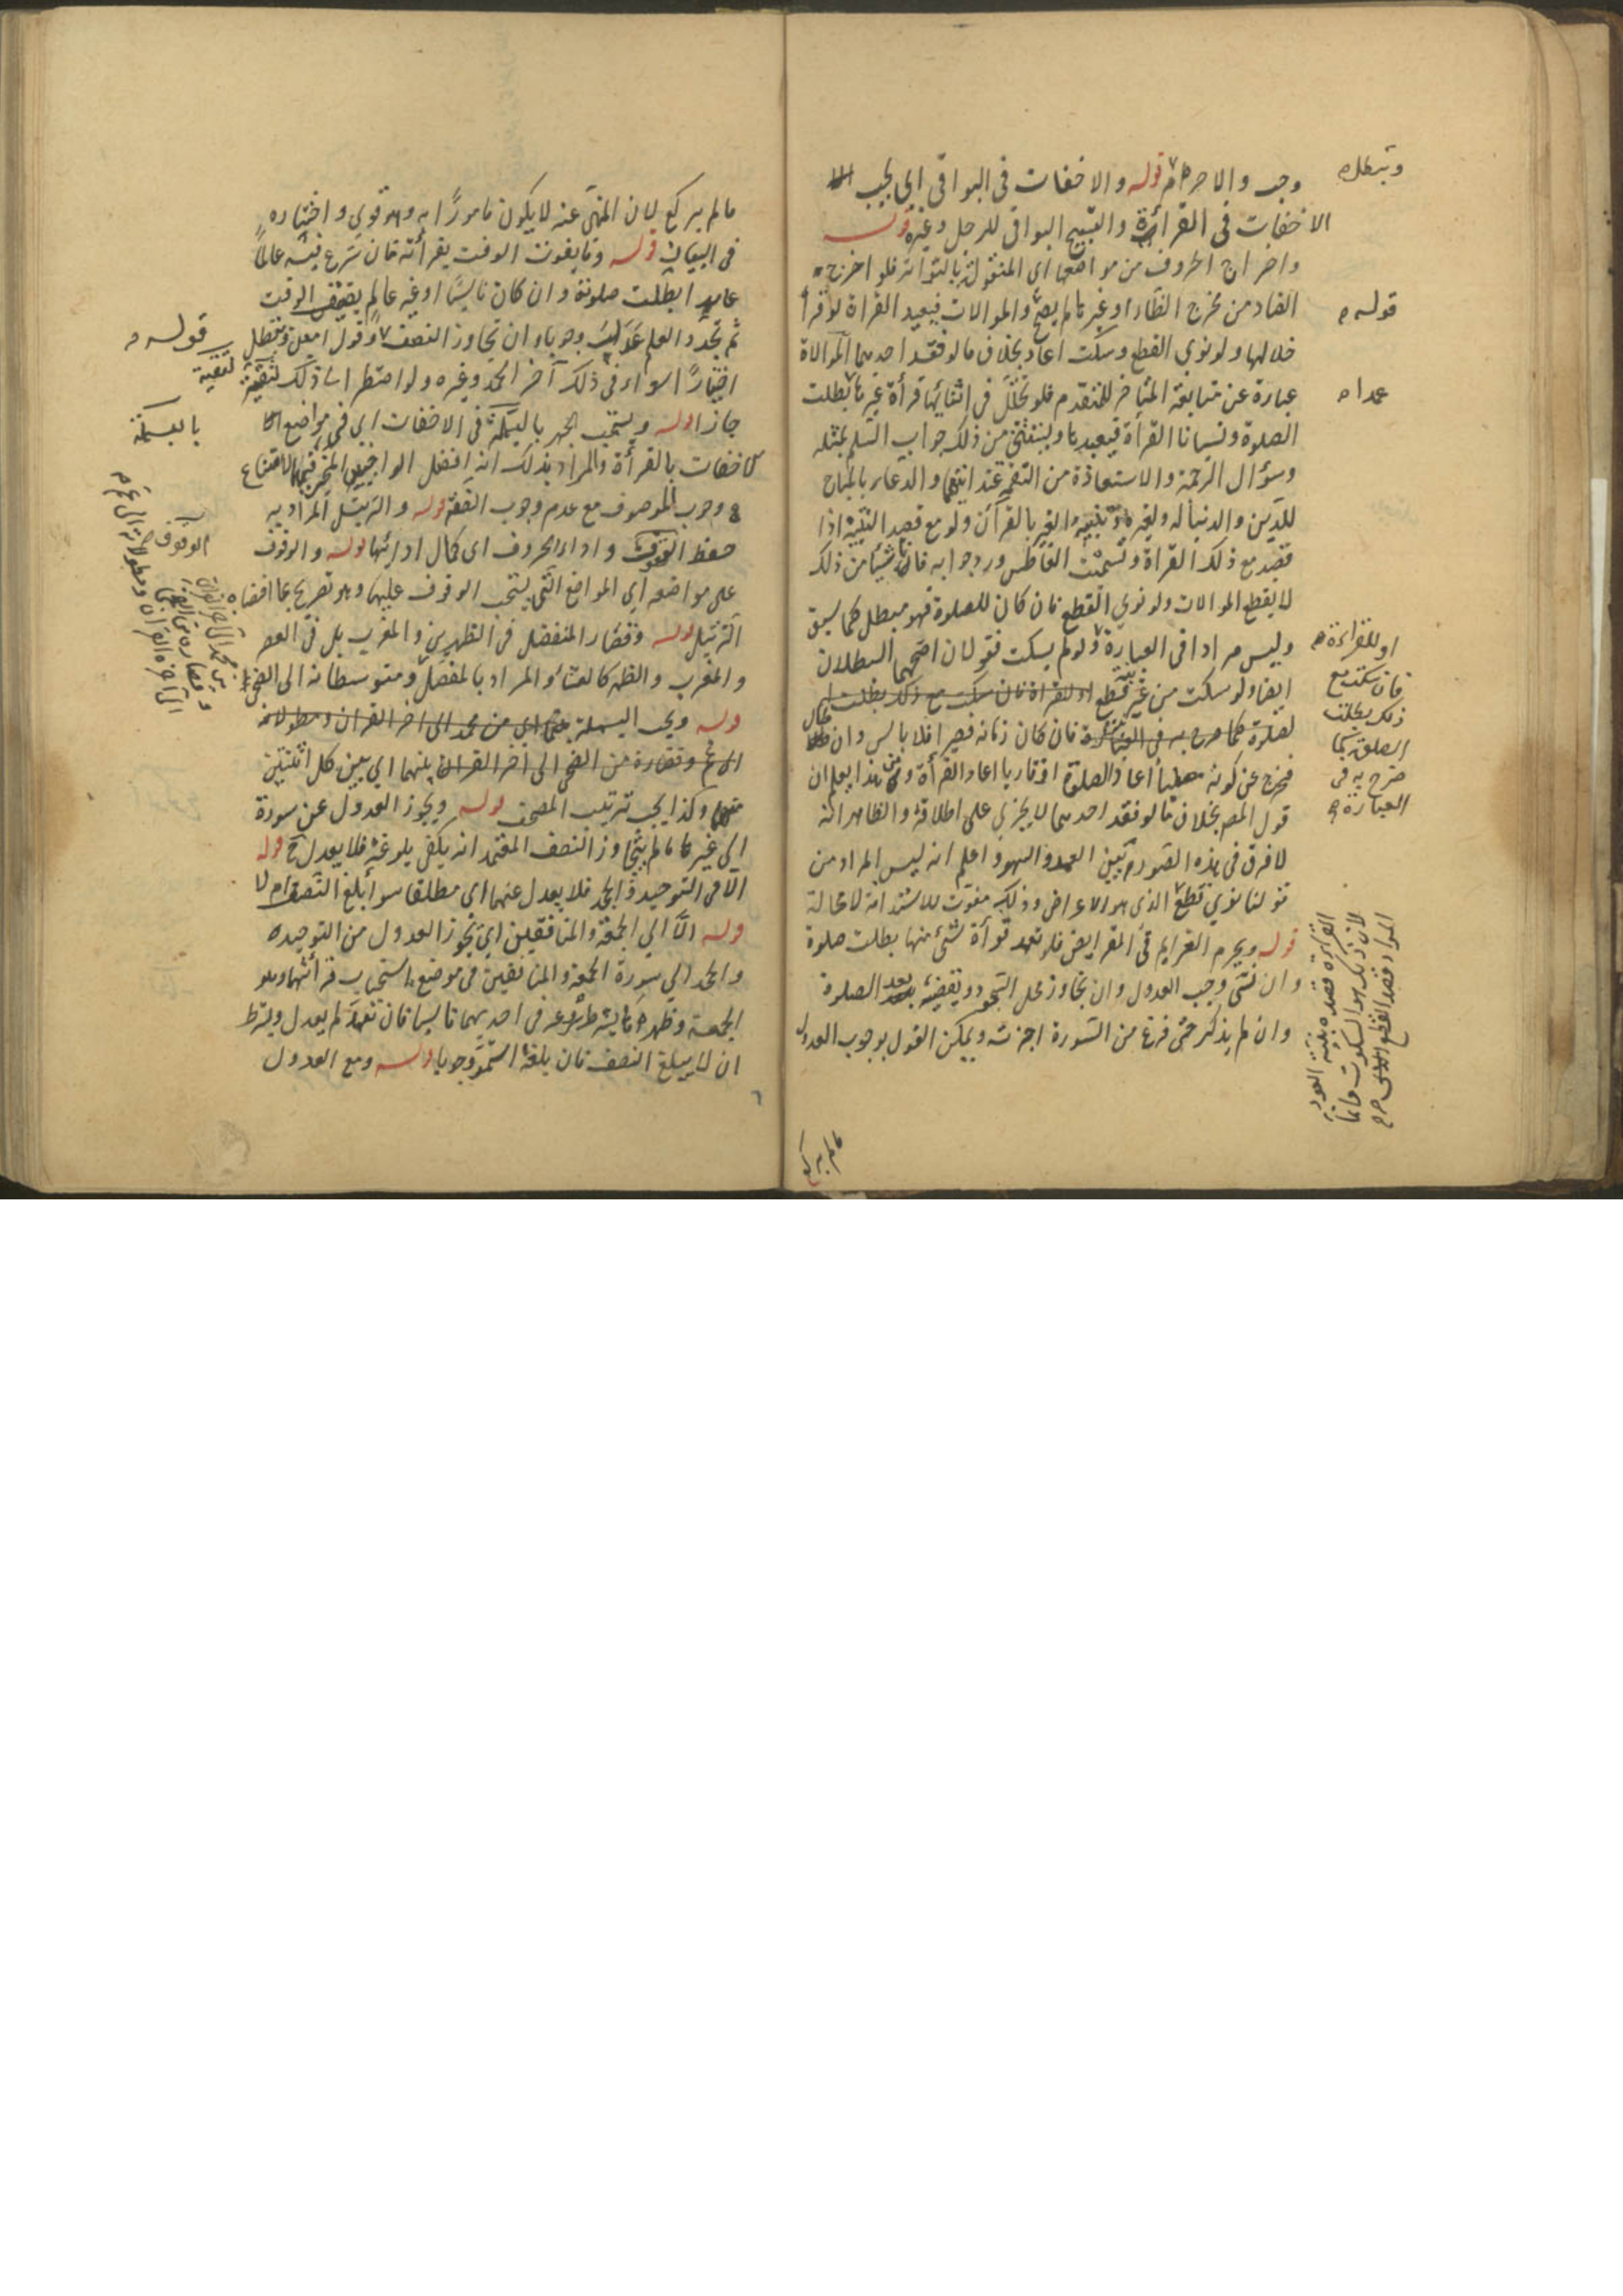 وجب والاحرم قوله والاخفات في البواقي اي يجب
الاخفات في القرائة والتسبيح البواقي للرجل وغيره قوله
واخراج الحروف من مواضعها اى المنقولة بالتواتر فلو اخرج
الضاد من مخرج الظاء او غيرها لم يصح والموالات فيعيد القراة لو قرأ
خلالها ولو نوى القطع وسكت اعاد بخلاف ما لو فقد احديهما الموالاة
عبارة عن متابعة المتاخر للمتقدم فلو تخلل في اثنائها قرأة غيرها بطلت
الصلوة ونسيانا القرأة فيعيدها ويستثنى من ذلك جواب السلم بمثله
وسؤال الرحمة والاستعاذة من النقمة عند ايتهما والدعاء بالمباح
للدين والدنيا له ولغيره وتنبيه الغير بالقرآن ولو مع قصد التنبيه اذا
قصد مع ذلك القراة وتسميت العاطس ورد جوابه فان شيئا من ذلك
لا يقطع الموالات ولو نوى القطع فان كان للصلوة فهو مبطل كما سبق
وليس مرادا في العبارة ولو لم يسكت فقولان اصحهما البطلان
ايضا ولو سكت من غير نية قطع او للقراة فان سكت مع ذلك بطلت
لصلوة كما صرح به في العبارة فان كان زمانه قصيرا فلا باس وان طال
فخرج عن كونه مصليا اعاد الصلوة او قاريا اعاد القرأة ومن هذا يعلم ان
قول المصـ بخلاف ما لو فقد احديهما لا يجزي على اطلاقه والظاهر انه
لا فرق في هذه الصورة بين العمد والسهو واعلم انه ليس المراد من
قولنا نوى قطع الذى هو الاعراض وذلك مفوت للاستدامة لا محالة
قوله ويحرم العزايم في الفرايض فلو تعمد قرأة شئ منها بطلت صلوة
وان نسى وجب العدول وان تجاوز محل السجود ويقضيه بعد الصلوة
وان لم يذكر حتى فرغ من السورة اجزات ويمكن القول بوجوب العدول
وتبطل
قوله
عمدا
او للقراءة
فان سكت مع
ذلك بطلت
الصلوة كما
صرح به في
العبارة
القراءة قصده بنية العود
لان ذلك هو السكوت
المراد قصد القطع
ما لم يركع
ما لم يركع لان المنهى عنه لا يكون مامورا به وهو قوى واختاره
في البيان قوله وما يفوت الوقت بقرأته فان شرع فيه عالما
عامدا بطلت صلوته وان كان ناسيا او غير عالم بضيق الوقت
ثم تجدد العلم عدل وجوبا وان تجاوز النصف وقول امين وتبطل
اختيارا سواء في ذلك آخر الحمد وغيره ولو اضطر الى ذلك لتقية
جاز قوله ويستحب الجهر بالبسملة في الاخفات اى في مواضع
كاخفات بالقرأة والمراد بذلك انه افضل الواجبين المخير فيهما لامتناع
وجوب الموصوف مع عدم وجوب الصفة قوله والترتيل المراد به
حفظ الوقوف واداء الحروف اى كمال ادائها قوله والوقوف
على مواضعه اى المواضع التى يستحب الوقوف عليها وهو تصريح بما افضاه
الترتيل قوله وقصار المفصل في الظهرين والمغرب بل في العصر
والمغرب والظهر كالعشاء والمراد بالمفصل ومتوسطاته الى الضحى
قوله ويجب البسملة من محمد الى اخر القران ومطولاته
الى عم وقصاره من الضحى الى اخر القران بينهما اى بين كل اثنتين
منهما وكذا يجب ترتيب المصحف قوله ويجوز العدول عن سورة
الى غيرها ما لم يتجاوز النصف المعتمد انه يكفى بلوغه فلا يعدل ح قوله
الا في التوحيد والجحد فلا يعدل عنهما اى مطلقا سوأ بلغ النصف ام لا
قوله الا الى الجمعة والمنافقين اى يجوز العدول من التوحيد
والجحد الى سورة الجمعة والمنافقين في موضع استحباب قرأتهما وهو
الجمعة وظهرها بشرط شروعه في احديهما ناسيا فان تعمد لم يعدل ويشترط
ان لا يبلغ النصف فان بلغه استمر وجوبا قوله ومع العدول
قوله
لتقية
بالبسملة
الوقوف
من محمد الى آخر القران